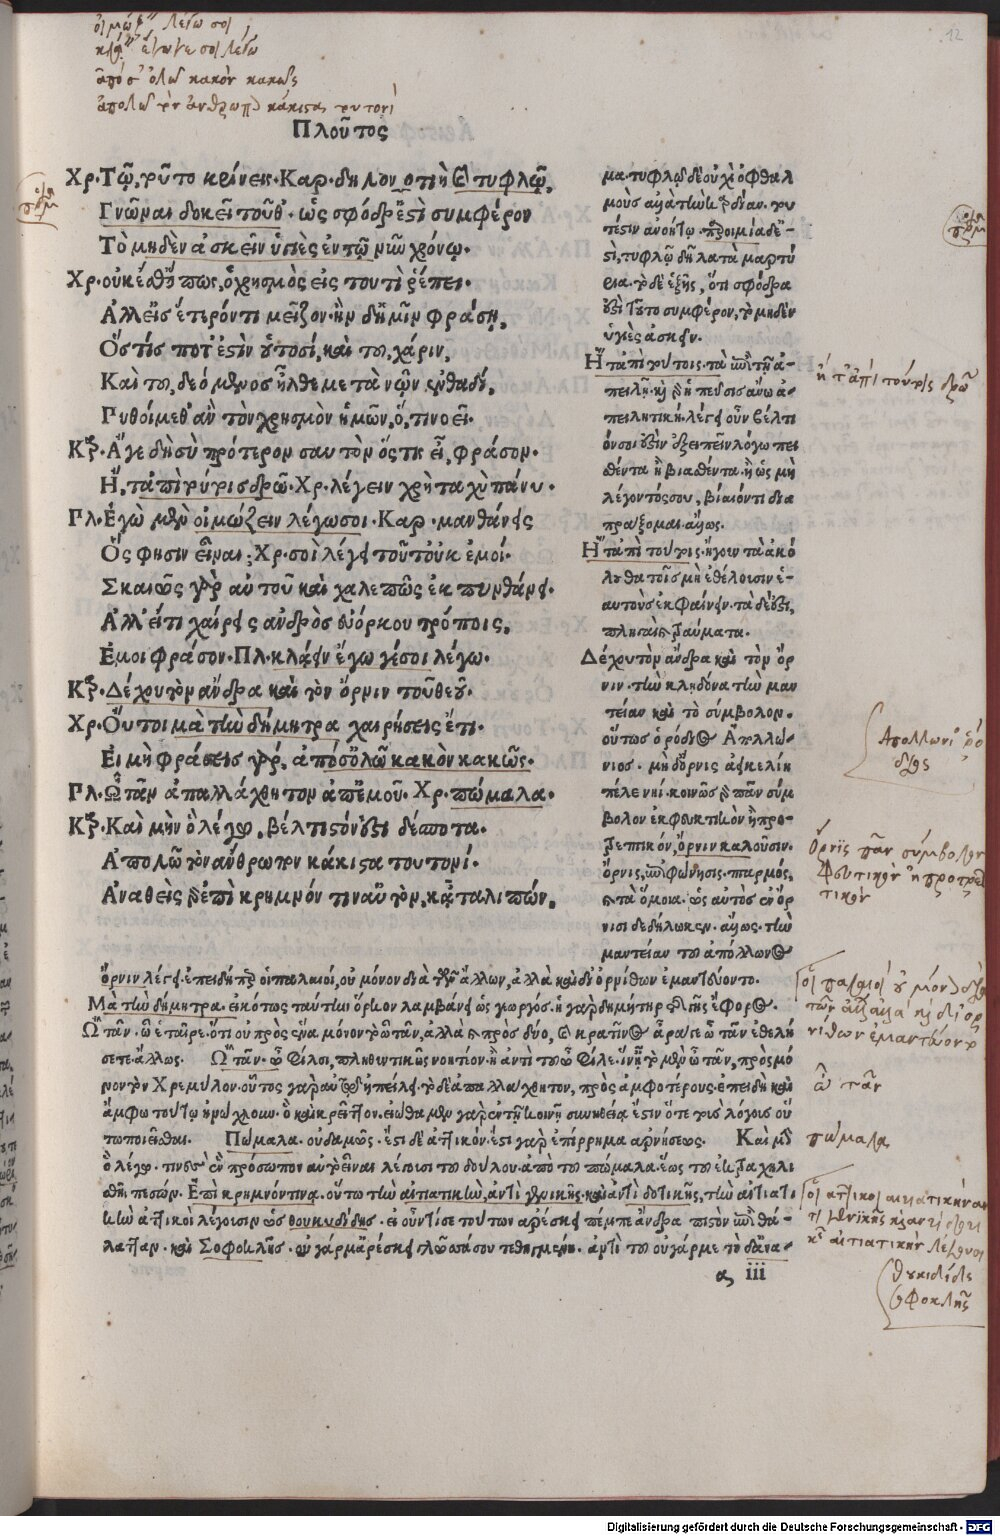 οἰμώζειν λέγω σοι
ἔγωγε σοι λέγω
ἀπό σ' ὀλῶ κακὸν κακῶς
ἀπολῶ τὸν ἄνθρωπον κάκιστα τουτονί
12
Πλοῦτος
Χρ. Τῷ, τοῦτο κρίνεις. Καρ. δῆλον ὁτιὴ καὶ τυφλῷ,
Γνῶναι δοκεῖ τοῦθ'. ὡς σφόδρ' ἐστὶ συμφέρον
Τὸ μηδὲν ἀσκεῖν ὑγιὲς ἐν τῷ νῦν χρόνῳ.
Χρ. οὐκ ἔσθ' ὅπως, ὁ χρησμὸς εἰς τουτὶ ῥέπει.
Ἀλλ' εἰς ἕτερόν τι μεῖζον. ἢν δ' ἡμῖν φράσῃ,
Ὅστις ποτ' ἐστὶν οὑτοσί, καὶ του, χάριν,
Καὶ του, δεόμενος ἦλθε μετὰ νῷν ἐνθαδί,
Πυθοίμεθ' ἂν τὸν χρησμὸν ἡμῶν, ὅ, τι νοεῖ.
Κρ. Ἄγε δὴ σὺ πρότερον σαυτὸν ὅστις εἶ, φράσον.
Ἤ, τἀπὶ τούτοις δρῶ. Χρ. λέγειν χρὴ ταχὺ πάνυ.
Πλ. Ἐγὼ μὲν οἰμώζειν λέγω σοι. Καρ. μανθάνεις
Ὅς φησιν εἶναι; Χρ. σοὶ λέγει τοῦτ' οὐκ ἐμοί.
Σκαιῶς γὰρ αὐτοῦ καὶ χαλεπῶς ἐκπυνθάνει.
Ἀλλ' εἴ τι χαίρεις ἀνδρὸς εὐόρκου τρόποις,
Ἐμοὶ φράσον. Πλ. κλάειν ἔγωγέ σοι λέγω.
Κρ. Δέχου τὸν ἄνδρα καὶ τὸν ὄρνιν τοῦ θεοῦ.
Χρ. Οὔτοι μὰ τὴν δήμητρα χαιρήσεις ἔτι.
Εἰ μὴ φράσεις γάρ, ἀπό σ' ὀλῶ κακὸν κακῶς.
Πλ. Ὦ τᾶν ἀπαλλάχθητον ἀπ' ἐμοῦ. Χρ. πώμαλα.
Κρ. Καὶ μὴν ὃ λέγω, βέλτιστόν ἐστι δέσποτα.
Ἀπολῶ τὸν ἄνθρωπον κάκιστα τουτονί.
Ἀναθεὶς γὰρ ἐπὶ κρημνόν τιν' αὐτὸν, κᾆτα λιπών,
μα. τυφλῷ δὲ οὐχὶ ὀφθαλ
μοὺς
τέστιν ἀνοήτῳ. παροιμία δέ ἐ-
στι, τυφλῷ δῆλα τὰ μαρτύ
ρια. τὸ δὲ ἑξῆς, ὅτι σφόδρα
ἐστὶ τοῦτο συμφέρον, τὸ μηδὲν
ὑγιὲς ἀσκεῖν.
Ἢ τἀπὶ τούτοις. τὰ ἐπὶ τῇ ἀ-
πειλῇ.
πειλητική. λέγει οὖν βέλτι
όν σοι ἐστὶν ἐξειπεῖν λόγῳ πει
σθέντα ἢ βιασθέντα. ἢ ὡς μὴ
λέγοντός σου, βίαιόν τι δια
πράξομαι. ἄλλως.
Ἢ τἀπὶ τούτοις. ἤγουν τὰ ἀκό
λουθα τοῖς μὴ ἐθέλουσιν ἑ-
αυτοὺς ἐκφαίνειν. τὰ δέ ἐστι,
πληγαὶ καὶ τραύματα.
Δέχου τὸν ἄνδρα καὶ τὸν ὄρ
νιν. τὴν κληδόνα τὴν μαν
τείαν καὶ τὸ σύμβολον.
οὕτως ὁ ῥόδιος Ἀπολλώ-
νιος. μὴ δ' ὄρνις ἀεικελίη
πέλε νηί. κοινῶς γὰρ πᾶν σύμ
βολον ἐκφευκτικὸν ἢ προ-
τρεπτικόν, ὄρνιν καλοῦσιν.
ὄρνις, ἐπιφώνησις. πταρμός,
καὶ τὰ ὅμοια. ὡς αὐτὸς ἐν ὄρ
νισι δεδήλωκεν. ἄλλως. τὴν
μαντείαν τοῦ ἀπόλλωνος
ὄρνιν λέγει. ἐπειδήπερ οἱ παλαιοί, οὐ μόνον διὰ τῶν ἄλλων, ἀλλὰ καὶ δι' ὀρνίθων ἐμαντεύοντο.
Μὰ τὴν δήμητρα. εἰκότως ταύτην ὅρκον λαμβάνει ὡς γεωργός. ἡ γὰρ δημήτηρ τῆς γῆς ἔφορος.
Ὦ τᾶν. ὦ ἑταῖρε. ὅτι οὐ πρὸς ἕνα μόνον τὸ ὦ τᾶν, ἀλλὰ καὶ πρὸς δύο, καὶ κρατῖνος ἆρά γε ὦ τᾶν ἐθελή
σετε. ἄλλως. Ὦ τᾶν. ὦ φίλοι, πληθυντικῆς νοητέον. ἢ ἀντὶ τοῦ ὦ φίλε. ἵν' ᾖ τὸ μὲν ὦ τᾶν, πρὸς μό
νον τὸν Χρεμύλον. οὗτος γὰρ αὐτῷ ἠπείλει. τὸ δὲ ἀπαλλάχθητον, πρὸς ἀμφοτέρους. ἐπειδὴ καὶ
ἄμφω τούτῳ ἠνώχλουν. ὃ καὶ κρεῖττον. εἴωθα μὲν γὰρ ἐν τῇ κοινῇ συνηθείᾳ ἔστιν ὅτε τοῖς λόγοις οὕ
τω ποιεῖσθαι. Πώμαλα. οὐδαμῶς. ἔστι δὲ ἀττικόν. ἔστι γὰρ ἐπίρρημα ἀρνήσεως. Καὶ μὴν
ὃ λέγω. τινὲς ἓν πρόσωπον αὐτὸ εἶναι λέγουσι τοῦ δούλου. ἀπὸ τοῦ πώμαλα. ἕως τοῦ ἐκτραχηλι
σθῇ πεσών. Ἐπὶ κρημνόν τινα. οὕτω τὴν αἰτιατικὴν, ἀντὶ γενικῆς. καὶ ἀντὶ δοτικῆς, τὴν αἰτιατι
κὴν ἀττικοὶ λέγουσιν ὡς θουκυδίδης. εἰ οὖν τί σε τούτων ἀρέσκει πέμπε ἄνδρα πιστὸν ἐπὶ θά-
λατταν. καὶ Σοφοκλῆς. οὐ γάρ μ' ἀρέσκει γλῶσσά σου τεθηγμένη. ἀντὶ τοῦ οὐ γάρ με τὸ
α iii
ἢ τ' ἀπὶ τούτοις δρῶ
Ἀπολλώνιος ῥό
διος
Ὄρνις πᾶν σύμβολον
φευκτικὸν ἢ προτρεπ
τικόν
οἱ παλαιοὶ οὐ μόνον διὰ
τῶν ἄλλων ἀλλὰ καὶ δι' ὀρ
νίθων ἐμαντεύοντο
ὦ τᾶν
πώμαλα
οἱ ἀττικοὶ αἰτιατικὴν ἀν
τὶ γενικῆς καὶ ἀντὶ δοτι
κῆς αἰτιατικὴν λέγουσι
θουκιδίδης
Σοφοκλῆς
Digitalisierung gefördert durch die Deutsche Forschungsgemeinschaft - DFG